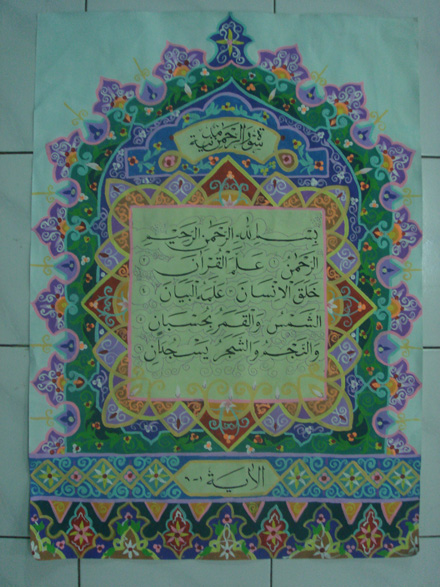 سورة الرحمن مدنية
بسم الله الرحمن الرحيم
الرحمن علم القرآن
خلق الإنسان علمه البيان
الشمس والقمر بحسبان
والنجم والشجر يسجدان
الآية